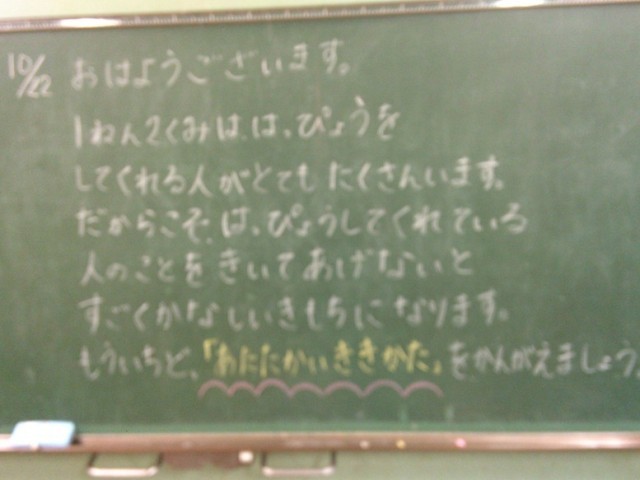 10/22 おはようございます。
1ねん2くみは、は、ぴょうを
してくれる人がとてもたくさんいます。
だからこそ、は、ぴょうしてくれている
人のことをきいてあげないと
すごくかなしいきもちになります。
もういちど、「あたたかいききかた」をかんがえましょう。